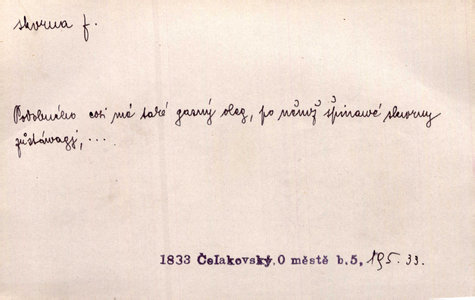 skvrna f.
Podobného cosi má také gasný oleg, po němž špinawé skwrny
zůstáwagj, ...
1833 Čelakovský, O městě b.5, 195. 33.